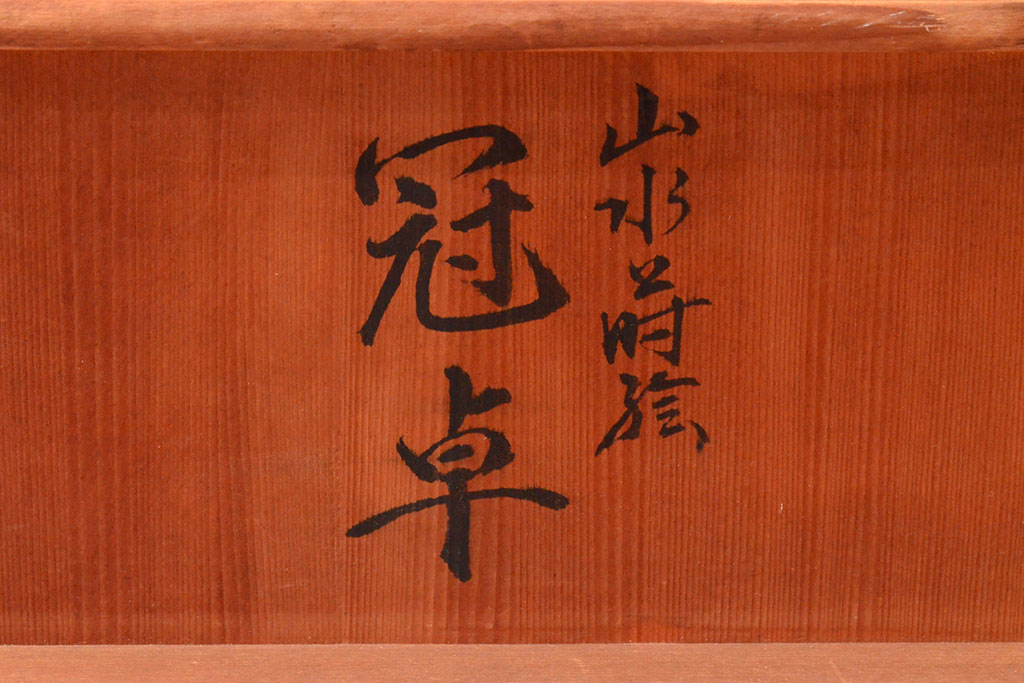 山水蒔絵
冠卓